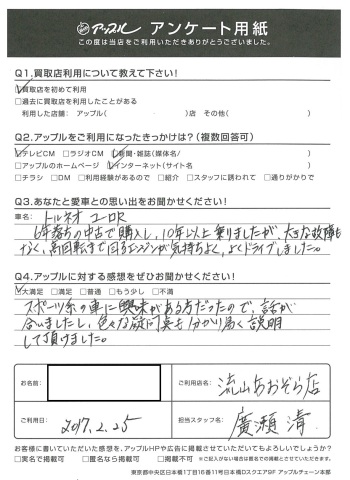 アップル アンケート用紙
この度は当店をご利用いただきありがとうございました。
Q1.買取店利用について教えて下さい!
☑買取店を初めて利用
□過去に買取店を利用したことがある
利用した店舗: アップル( )店 その他( )
Q2.アップルをご利用になったきっかけは?(複数回答可)
☑テレビCM □ラジオCM ☑新聞・雑誌(媒体名/ )
□アップルのホームページ ☑インターネット(サイト名 )
□チラシ □DM □利用経験があるので □紹介 □スタッフに誘われて □通りがかりで
Q3.あなたと愛車との思い出をお聞かせください!
車名: トルネオ ユーロR
6年落ちの中古で購入し、10年以上乗りましたが、大きな故障も
なく、高回転まで回るエンジンが気持ちよく、よくドライブしました。
Q4.アップルに対する感想をぜひお聞かせください!
☑大満足 □満足 □普通 □もう少し □不満
スポーツ系の車に興味がある方だったので、話が
合いましたし、色々な疑問点も分かり易く説明
して頂けました。
お名前:
ご利用店名: 流山おおぞら店
ご利用日: 2017.2.25
担当スタッフ名: 廣瀬 清
お客様に書いていただいた感想を、アップルHPや広告に掲載させていただいてもよろしいでしょうか?
□実名で掲載可 □匿名なら掲載可 □掲載不可 ※ご記入がない場合は匿名での掲載とさせていただきます。
東京都中央区日本橋1丁目16番11号日本橋Dスクエア9F アップルチェーン本部